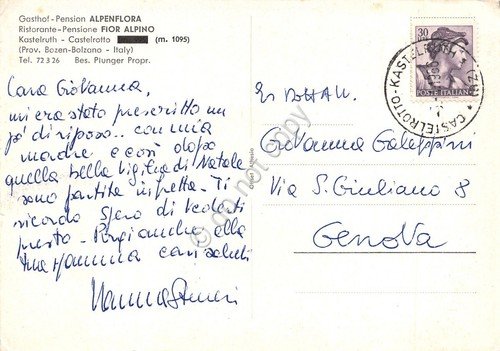 Gasthof - Pension ALPENFLORA
Ristorante - Pensione FIOR ALPINO
Kastelruth - Castelrotto (m. 1095)
(Prov. Bozen-Bolzano - Italy)
Tel. 72326 Bes. Plunger Propr.
Cara Giovanna,
mi era stato prescritto un
pò di riposo.. con mia
madre e così dopo
quella bella vigilia di Natale
sono partita in fretta. Ti
ricordo spero di vederti
presto. Porgi anche alla
tua Mamma cari saluti
30
POSTE ITALIANE
CASTELROTTO - KASTELRUTH
(BZ)
Giovanna Galeppini
Via S. Giuliano 8
Genova
do not copy